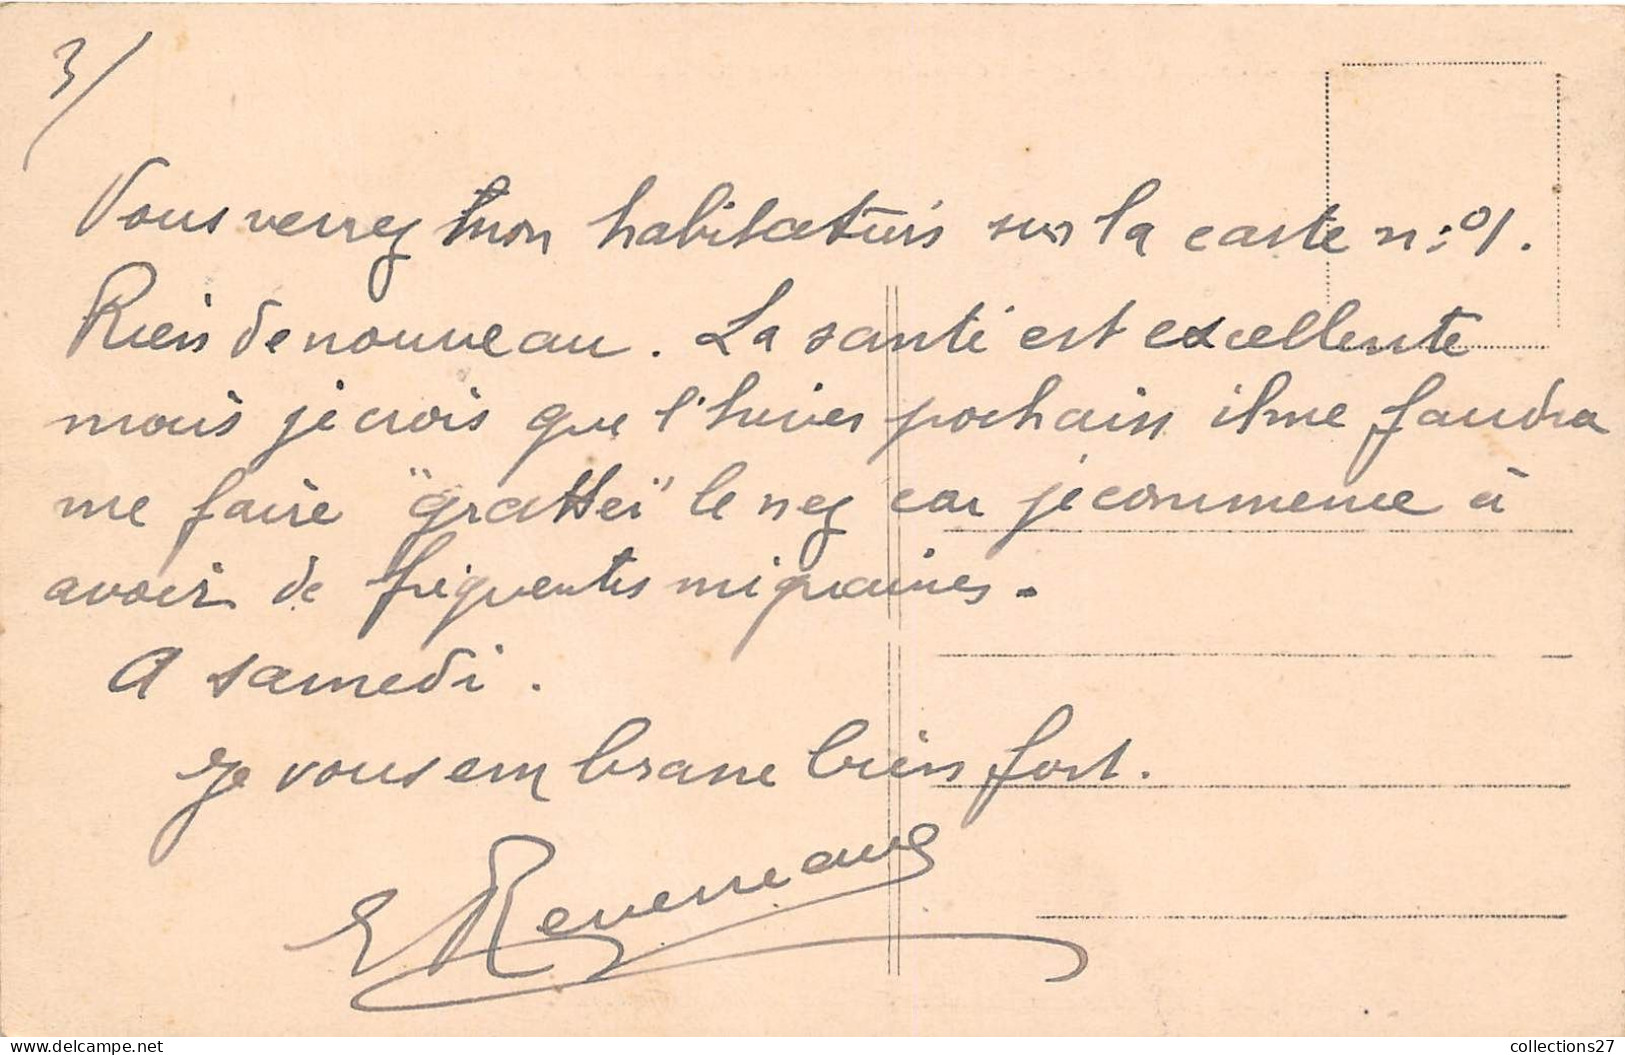 3/
Vous verrez mon habitation sur la carte n:01.
Rien de nouveau. La santé est excellente
mais je crois que l'hiver prochain il me faudra
me faire "gratter" le nez car je commence à
avoir de fréquentes migraines.
A samedi.
Je vous embrasse bien fort.
collections27
Delcampe.net